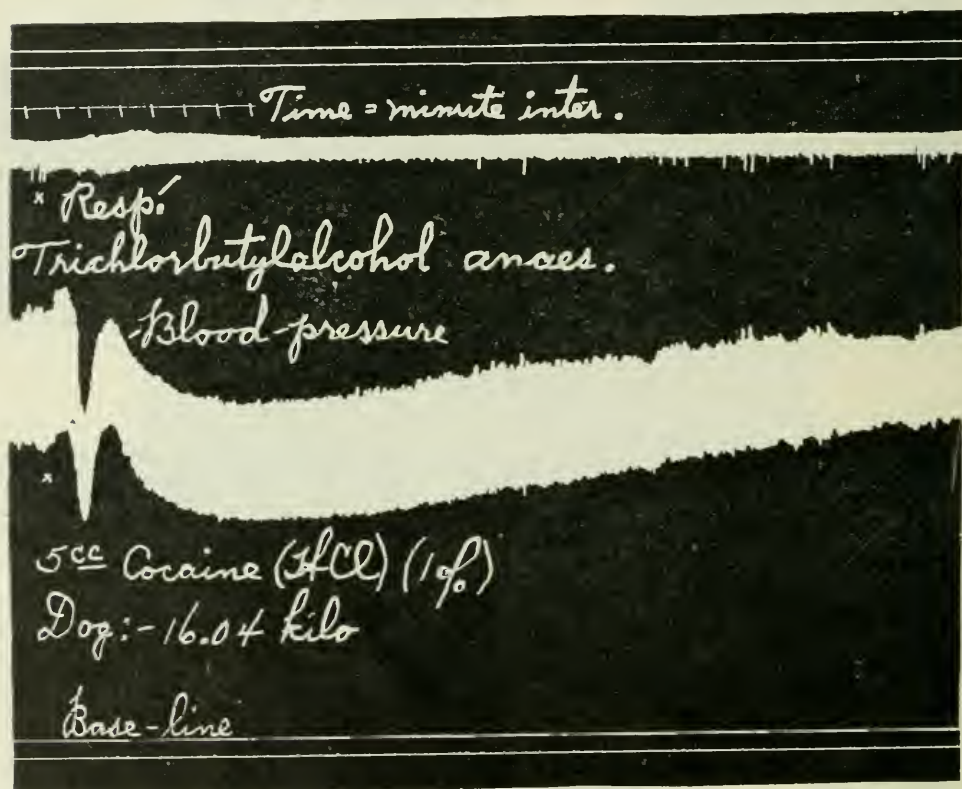 Time = minute inter.
x Resp.
Trichlorbutylalcohol anaes.
-Blood-pressure
x
5cc Cocaine (HCl) (1%)
Dog:- 16.04 kilo
Base-line